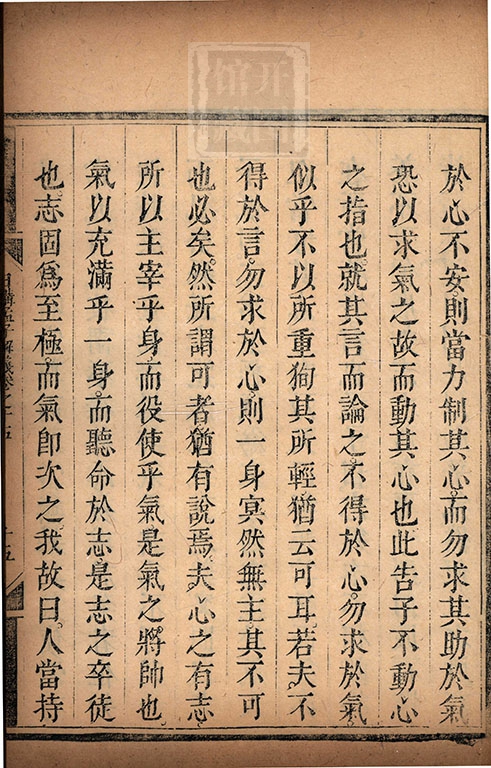 於心不安則當力制其心而勿求其助於氣
恐以求氣之故而動其心也此告子不動心
之指也就其言而論之不得於心勿求於氣
似乎不以所重狥其所輕猶云可耳若夫不
得於言勿求於心則一身冥然無主其不可
也必矣然所謂可者猶有說焉夫心之有志
所以主宰乎身而役使乎氣是氣之將帥也
氣以充滿乎一身而聽命於志是志之卒徒
也志固爲至極而氣即次之我故曰人當持